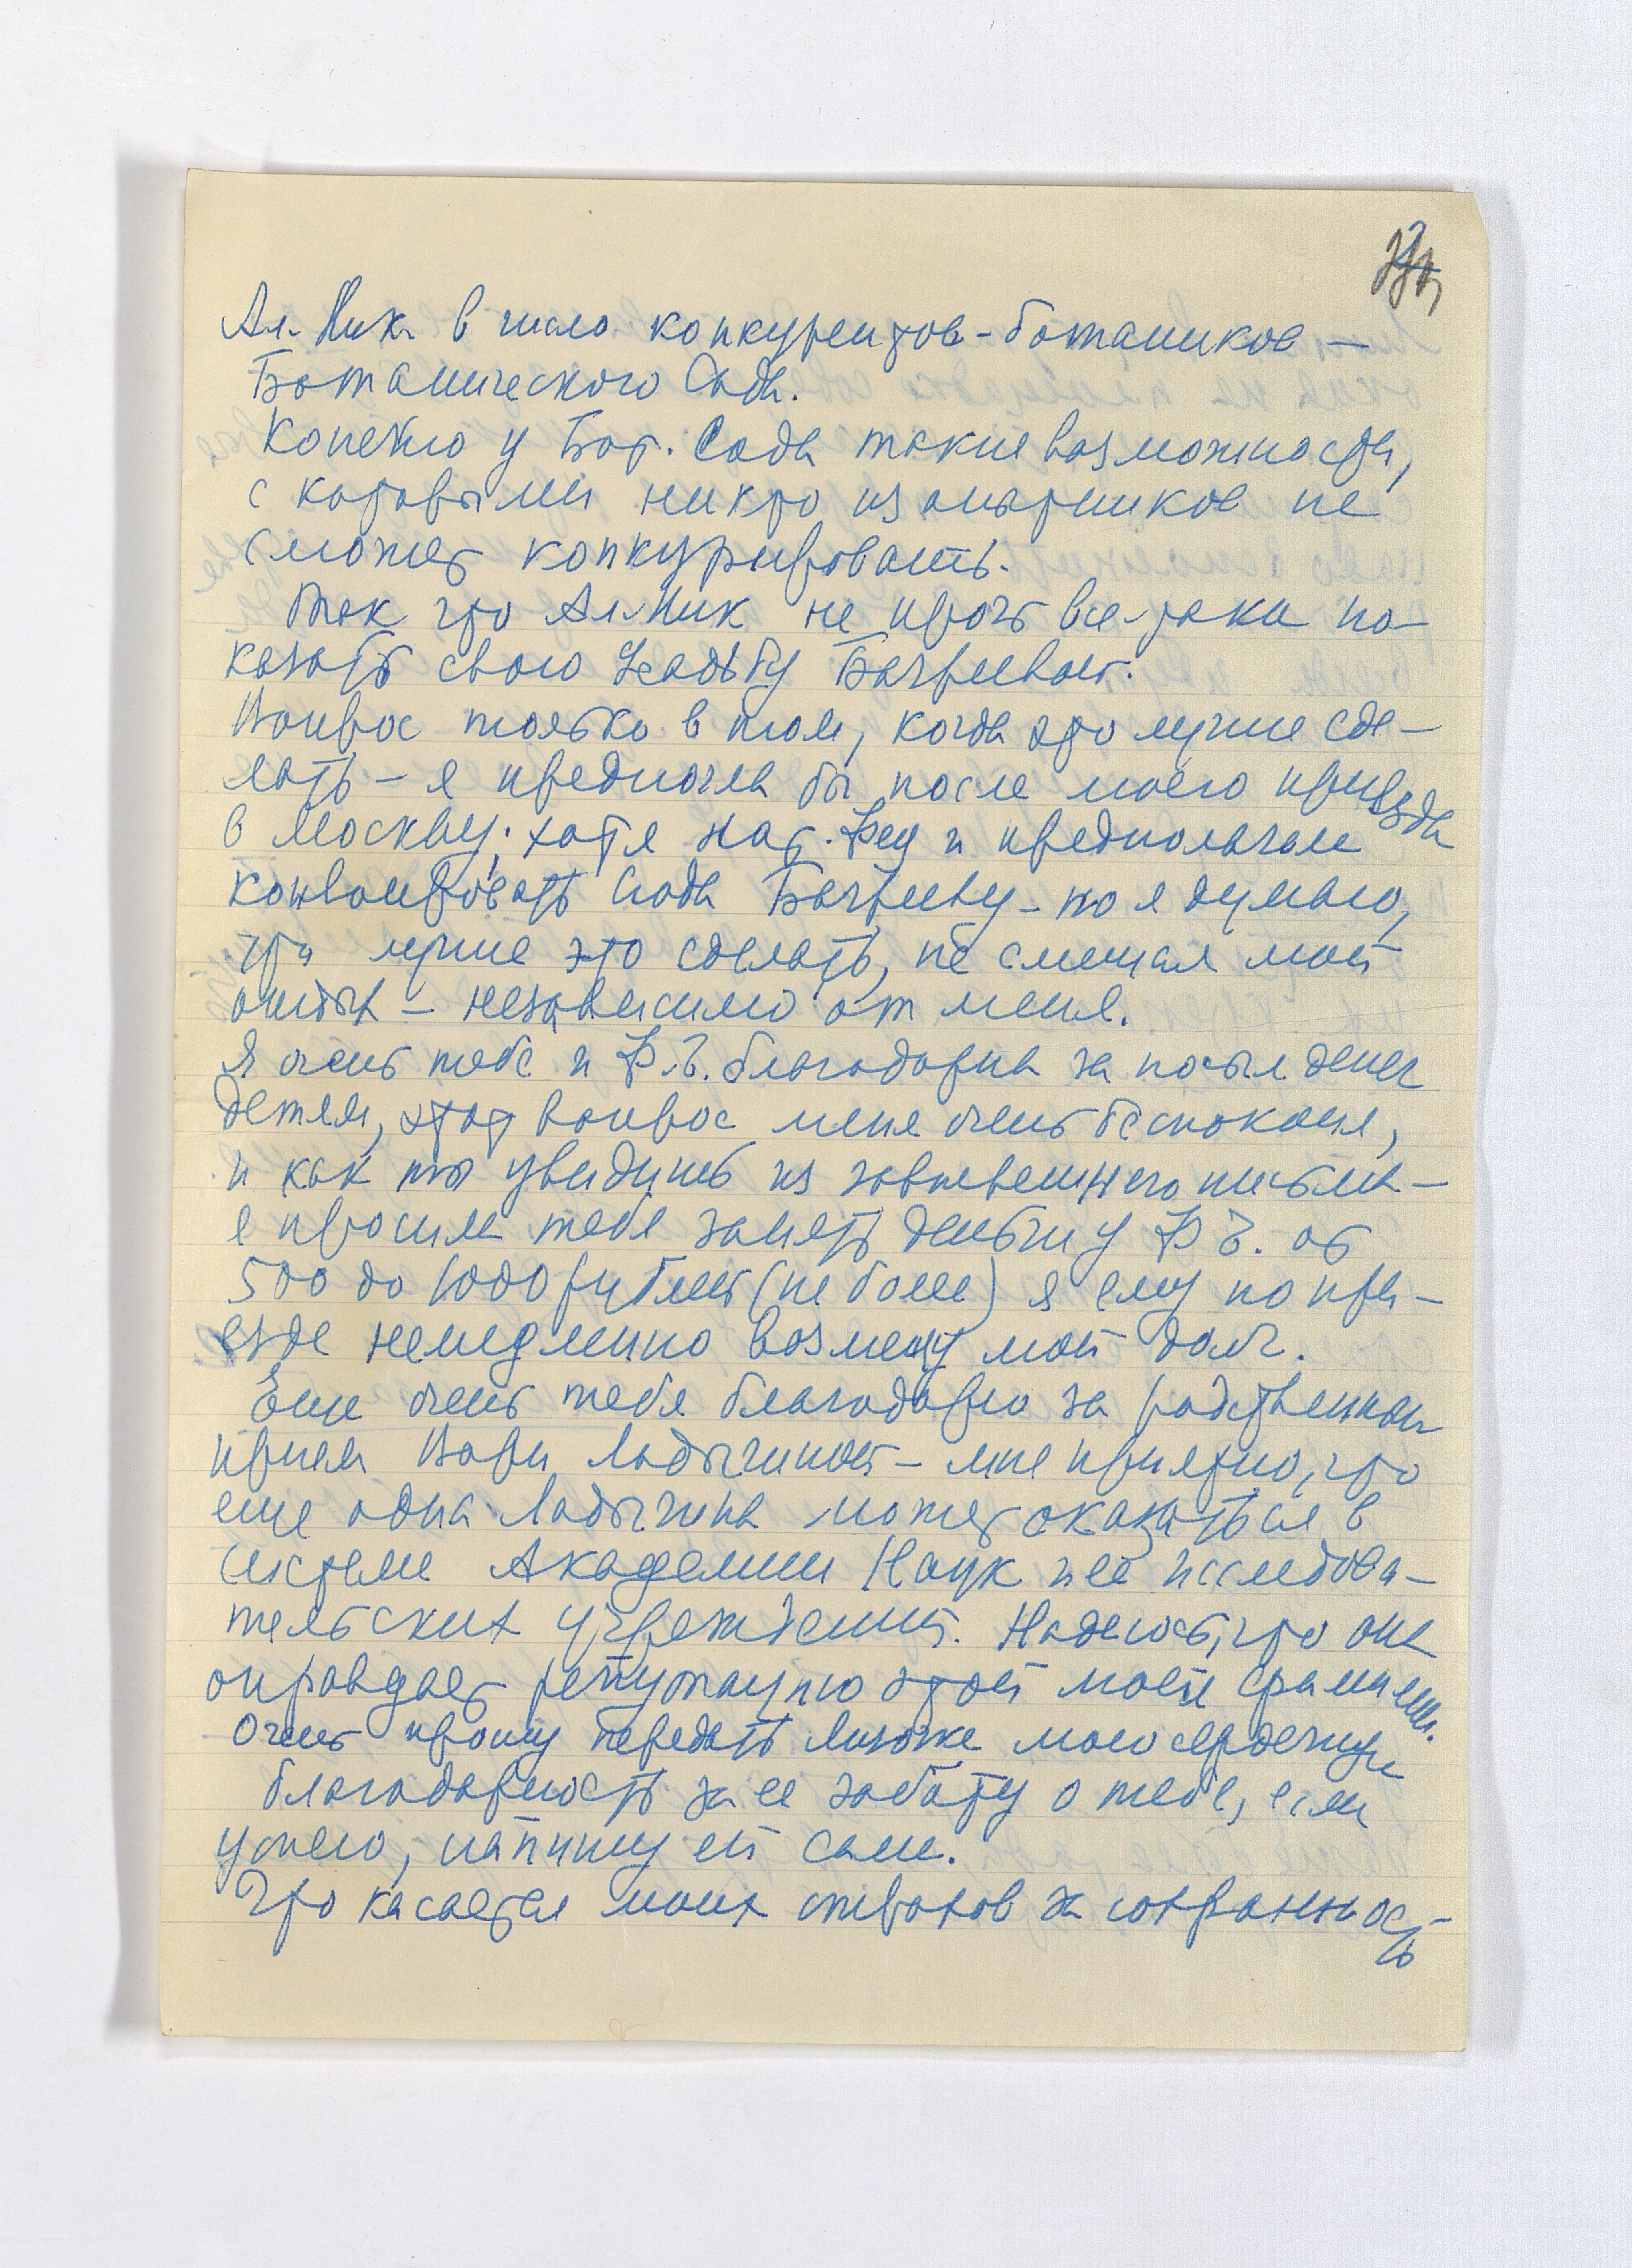 Ал. Ник. в число конкурентов-ботаников —
Ботанического Сада.
Конечно у Бот. Сада такие возможности,
с которыми никто из опытников не
сможет конкурировать.
Так что Ал. Ник не прочь все-таки по-
казать свою усадьбу Бочреевой.
Вопрос только в том, когда это лучше сде-
лать – я предпочла бы после моего приезда
в Москву; хотя Нат. Фед и предполагаем
сюда – но я думаю,
что лучше это сделать, не смешая мой
отдых – независимо от меня.
Я очень тебе и Ф.Э. благодарна за посыл денег
детям, этот вопрос меня очень беспокоил,
и как ты увидишь из моего письма –
я просила тебя занять деньги у Ф Э. от
500 до 1000 рублей (не более) я ему по при-
езде немедленно возмещу мой долг.
Еще очень тебя благодарю за родственный
прием Вари Ладыгиной – мне приятно, что
еще одна Ладыгина может оказаться в
системе Академии Наук и ее исследова-
тельских учреждений. Надеюсь, что она
оправдает репутацию этой моей фамилии.
Очень прошу передать Лизочке мою сердечную
благодарность за ее заботу о тебе, если
успею, напишу ей сама.
Что касается моих страхов за сохранность